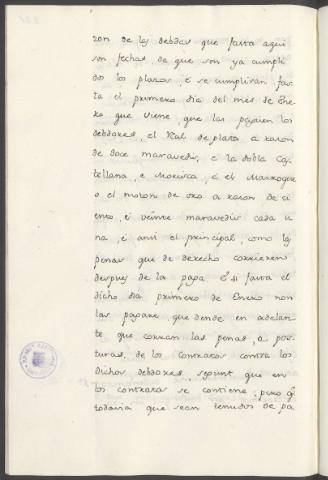 zon de las debdas que fasta aqui
son fechas de que son ya cumpli
dos los plazos, e se cumpliran fas
ta el primero dia del mes de Ene
ro que viene, que las paguen los
debdores, el Real de plata a razon
de doce maravedis, e la dobla Cas
tellana, e Morisca, e el Marroqui
o el moton de oro a razon de ci
ento, e veinte maravedis cada u
na, e ansi el principal, como las
penas que de derecho corrieren
despues de la paga. E si fasta el
dicho dia primero de Enero non
las pagare que dende en adelan
te que corran las penas, a pos
turas, de los contratos contra los
dichos debdores, segunt que en
los contratos se contiene, pero q.
todavia que sean tenudos de pa